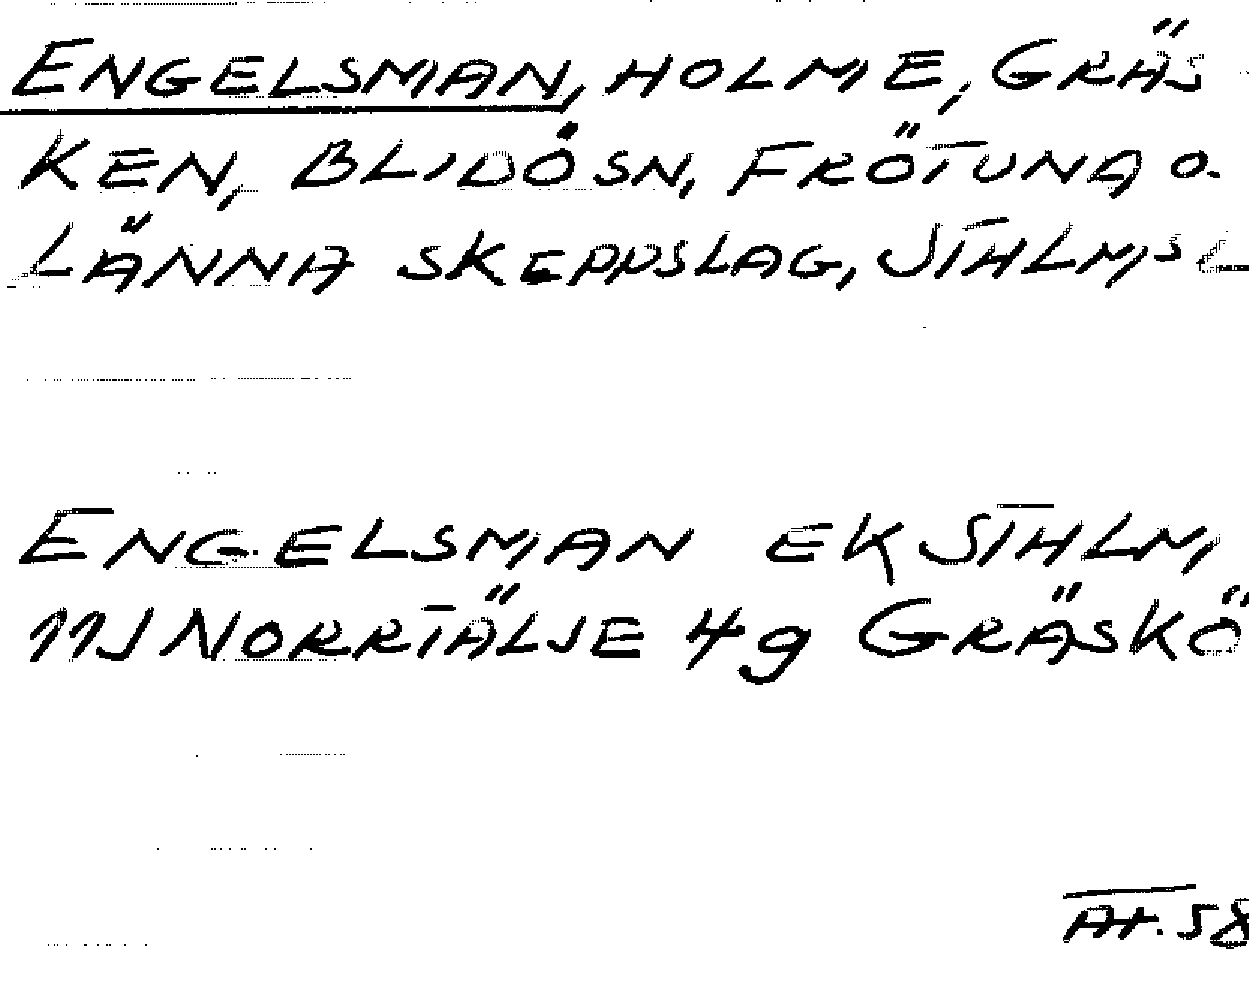 ENGELSMAN, HOLME, GRÄS
KEN, BLIDÖSN, FRÖTUNA O.
LÄNNA SKEPPSLAG, STHLMS L
ENGELSMAN EK STHLM,
11J NORRTÄLJE 4g GRÄSKÖ
AH. 58